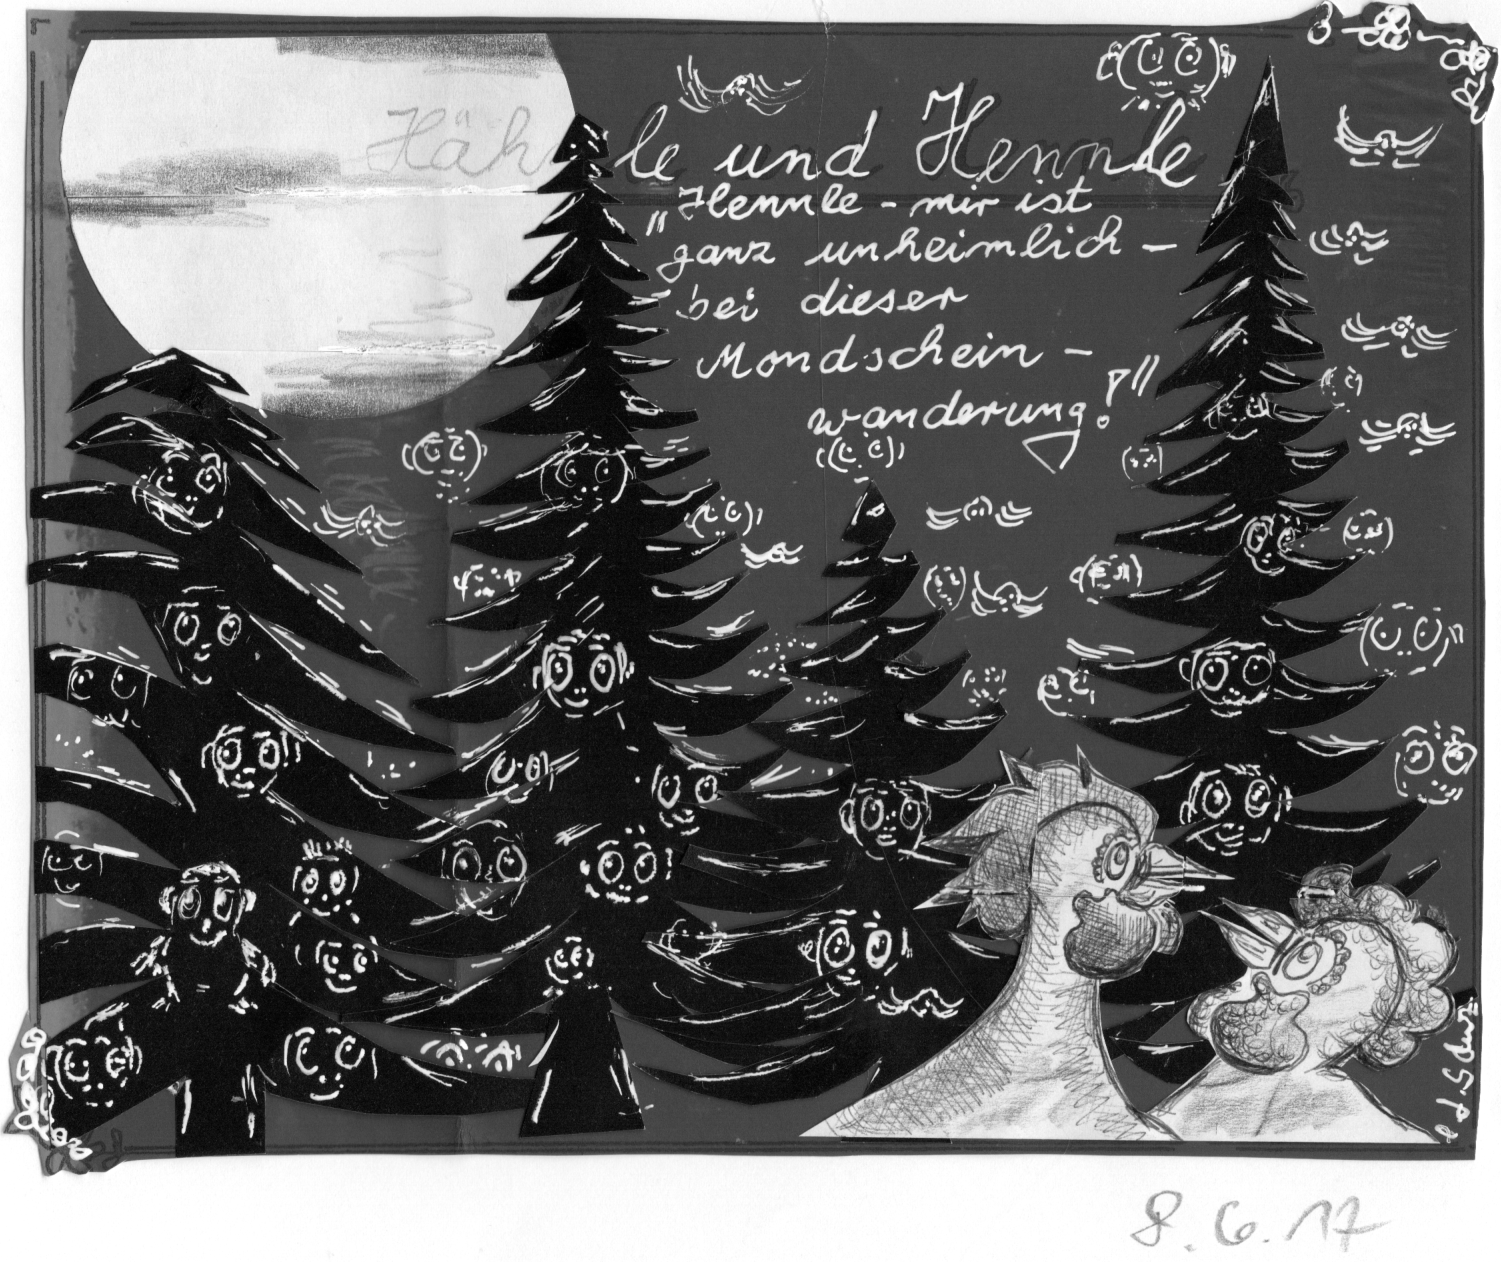 Hähnle und Hennle
"Hennle - mir ist
ganz unheimlich -
bei dieser
Mondschein -
wanderung!"
8.6.17